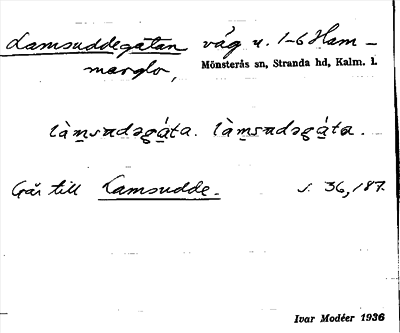 Lamsuddegatan väg u. 1-6 Ham-
marglo,
Mönsterås sn, Stranda hd, Kalm. l.
làm̲sudəgáta. làm̲sudəgáta.
Går till Lamsudde. s. 36, 187.
Ivar Modéer 1936